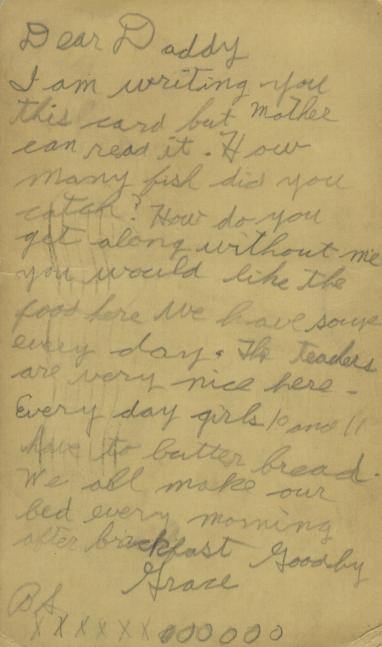 Dear Daddy
I am writing you
this card but Mother
can read it. How
many fish did you
catch? How do you
get along without me
you would like the
food here We have soup
every day. The teaders
are very nice here -
Every day girls 10 and 11
have to butter bread.
We all make our
bed every morning
after brackfast Goodby
Grace
B.S.
XXXXXX000000